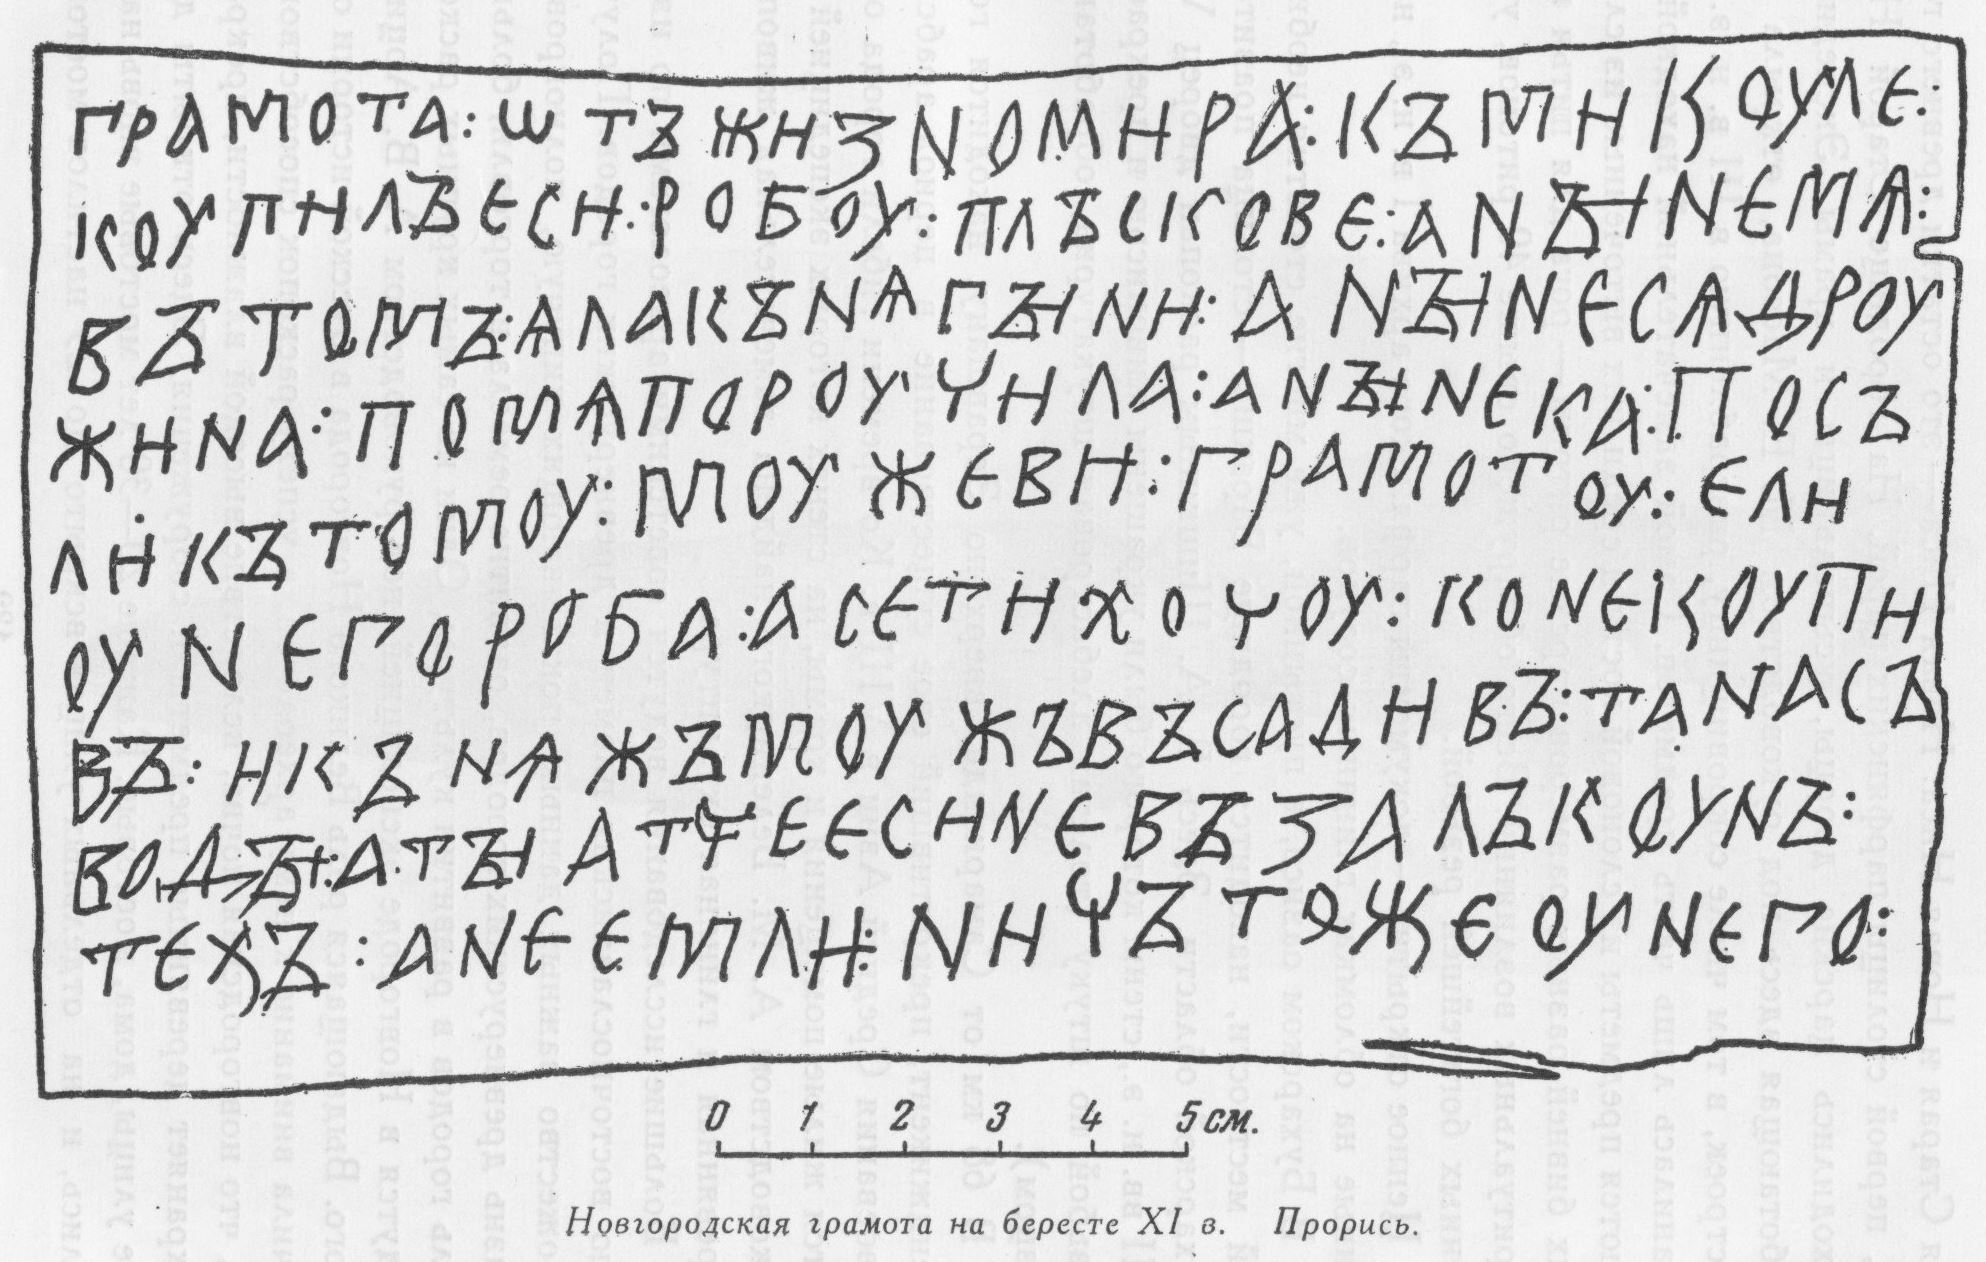 ГРАМОТА : Ѡ ТЪ ЖИЗНОМИРА : КЪ МИКОУЛЕ :
КОУПИЛЪ ЕСИ : РОБОУ : ПЛЪСКОВЕ : А НЪІНЕ МѦ :
ВЪ ТОМЪ : ѦЛА КЪНѦГЪІНИ : А НЪІНЕ СѦ ДРОУ
ЖИНА : ПО МѦ ПОРОУЧИЛА : А НЪІНЕ КА : ПОСЪ
ЛИ КЪ ТОМОУ : МОУЖЕВИ : ГРАМОТОУ : ЕЛИ
ОУ НЕГО РОБА : А СЕ ТИ ХОЧОУ : КОНЕ КОУПИ
ВЪ : И КЪНѦЖЪ МОУЖЪ ВЪСАДИВЪ : ТА НА СЪ
ВОДЪІ : А ТЪІ АТЧЕ ЕЕСИ НЕ ВЪЗАЛЪ КОУНЪ :
ТЕХЪ : А НЕ ЕМЛИ : НИЧЪТОЖЕ ОУ НЕГО :
0 1 2 3 4 5 см.
Новгородская грамота на бересте XI в. Прорись.